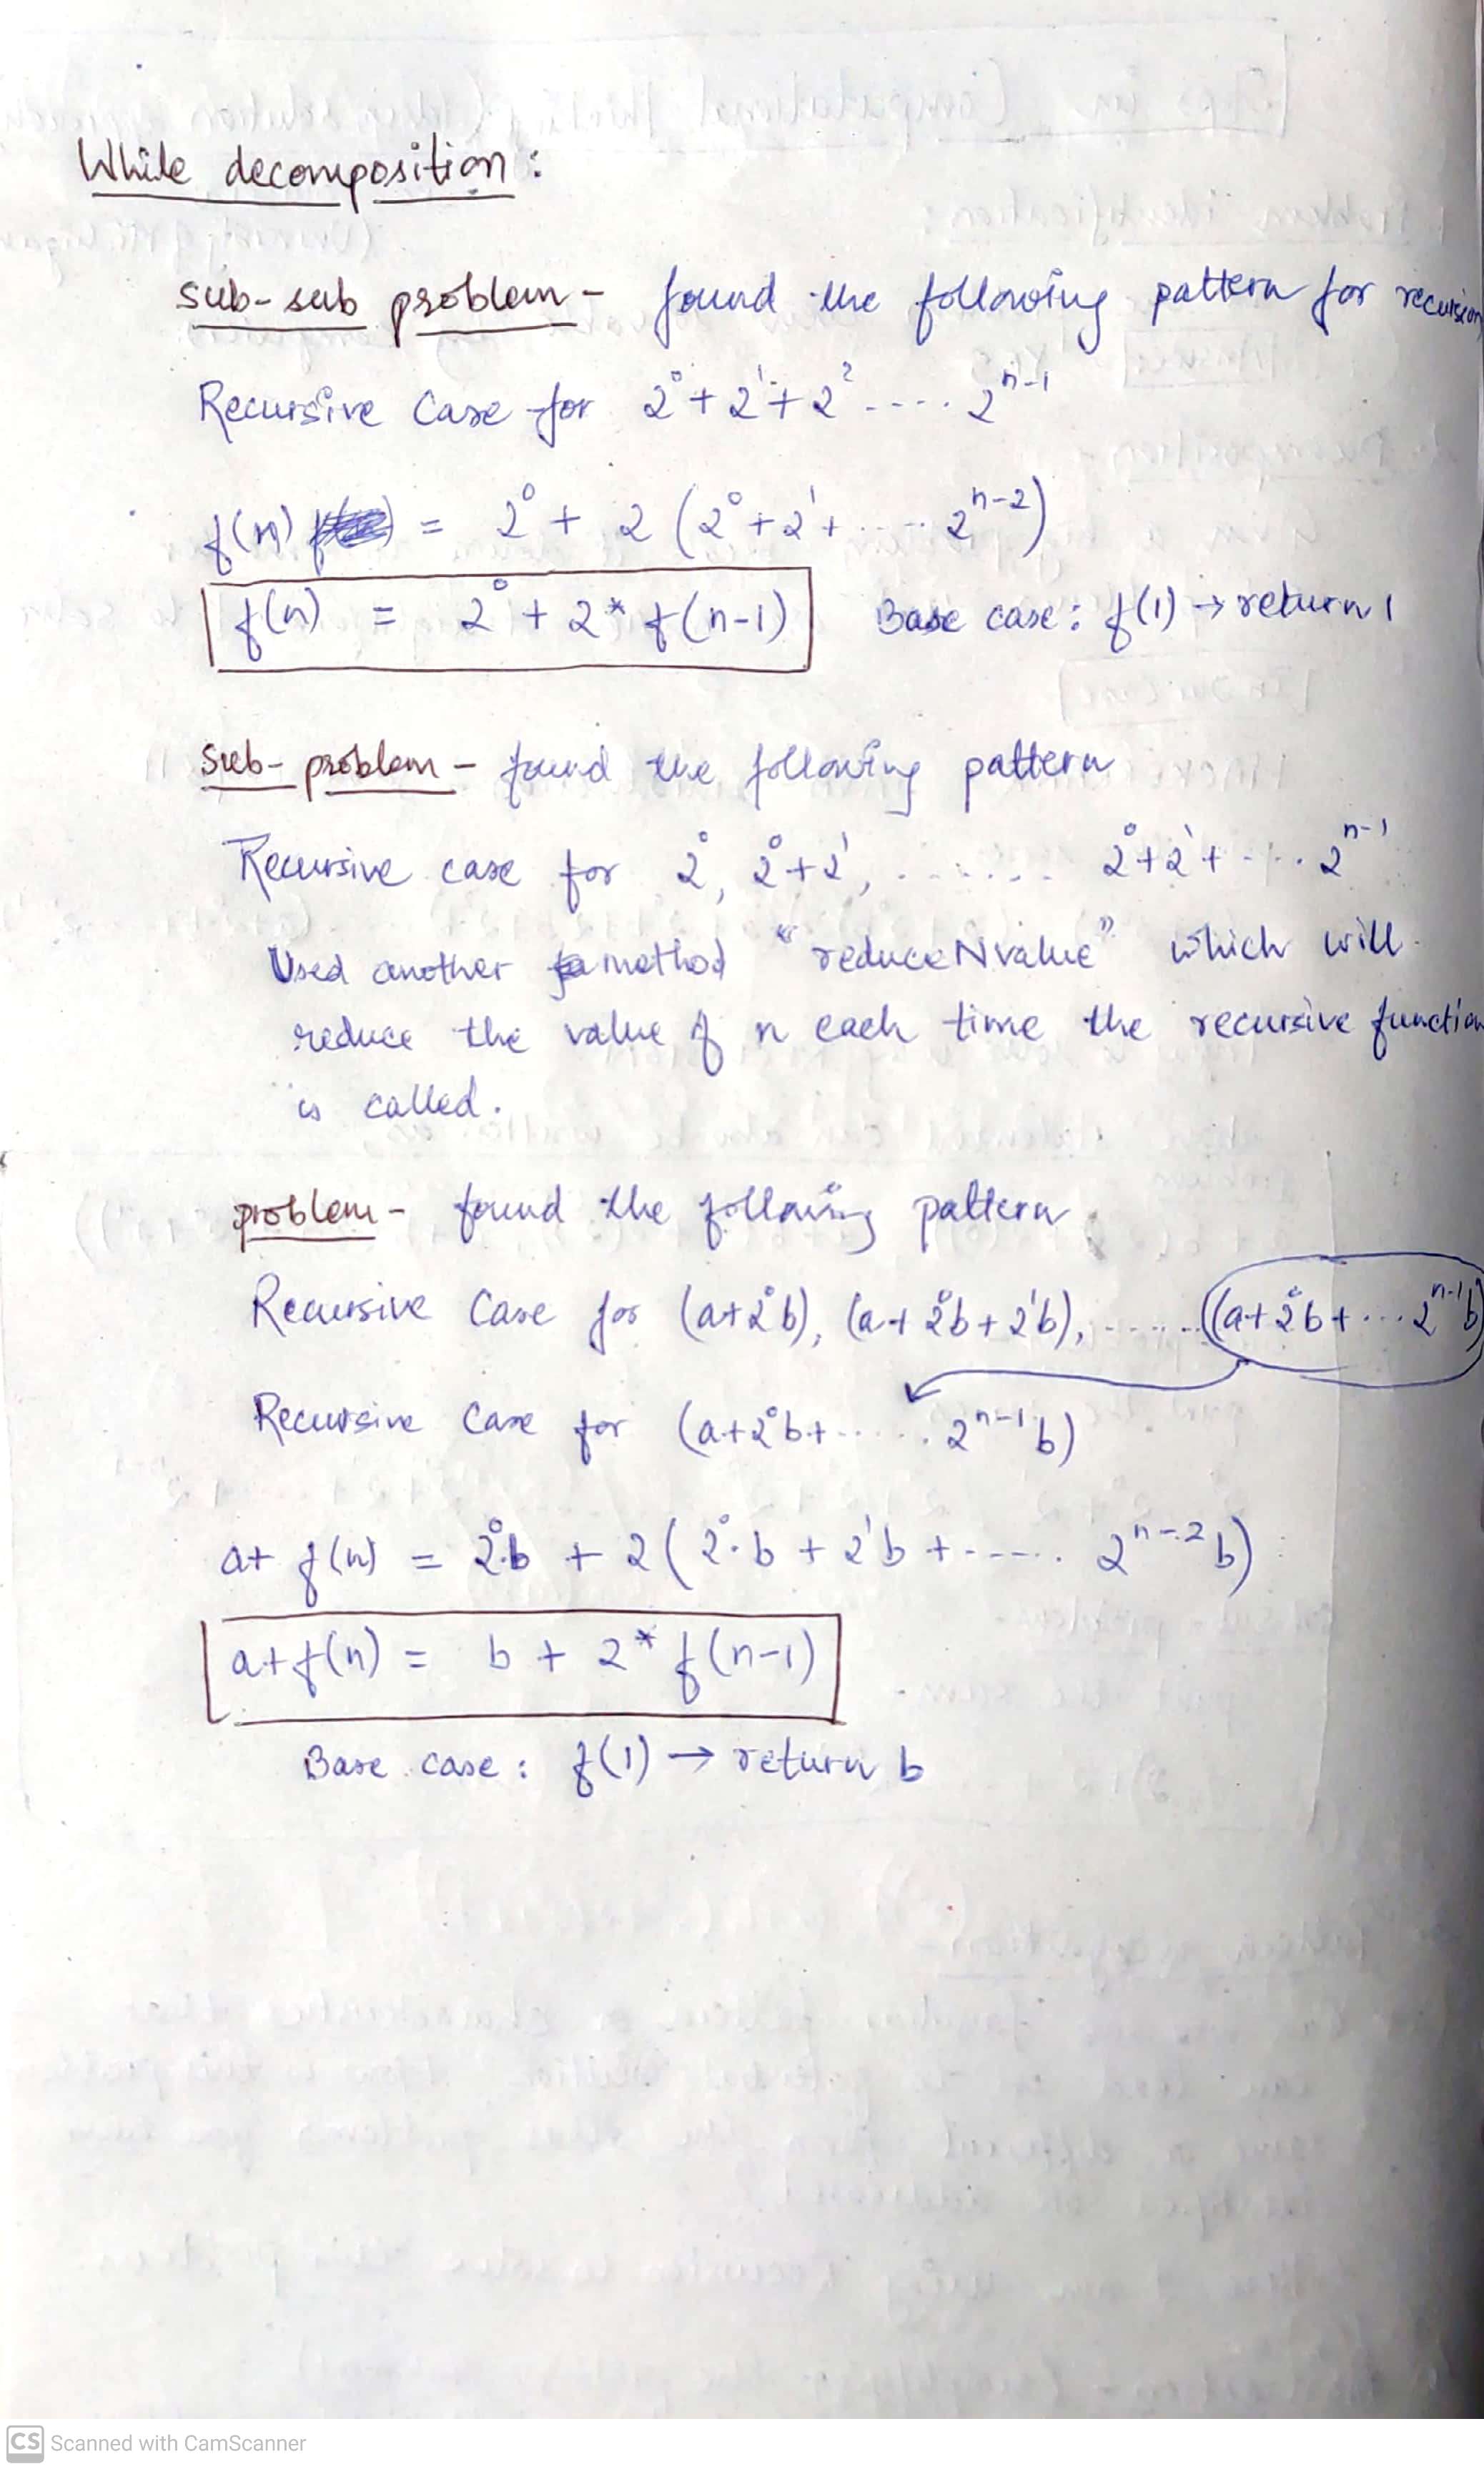 While decomposition :
sub-sub problem - found the following pattern for recursion
Recursive Case for 2⁰ + 2¹ + 2² ---- 2ⁿ⁻¹
f(n) = 2⁰ + 2 (2⁰ + 2¹ + ----- 2ⁿ⁻²)
f(n) = 2⁰ + 2 * f(n-1) Base case : f(1) → return 1
sub-problem - found the following pattern
Recursive case for 2⁰, 2⁰+2¹, ------- 2⁰+2¹+ ---- 2ⁿ⁻¹
Used another method "reduceNvalue" which will
reduce the value of n each time the recursive function
is called.
problem - found the following pattern
Recursive Case for (a+2⁰b), (a+2⁰b+2¹b), ------ (a+2⁰b+ ... 2ⁿ⁻¹b)
Recursive Case for (a+2⁰b+ ------ 2ⁿ⁻¹b)
a+ f(n) = 2⁰·b + 2 ( 2⁰·b + 2¹b + ------ 2ⁿ⁻²b)
a+f(n) = b + 2 * f(n-1)
Base case : f(1) → return b
CS Scanned with CamScanner